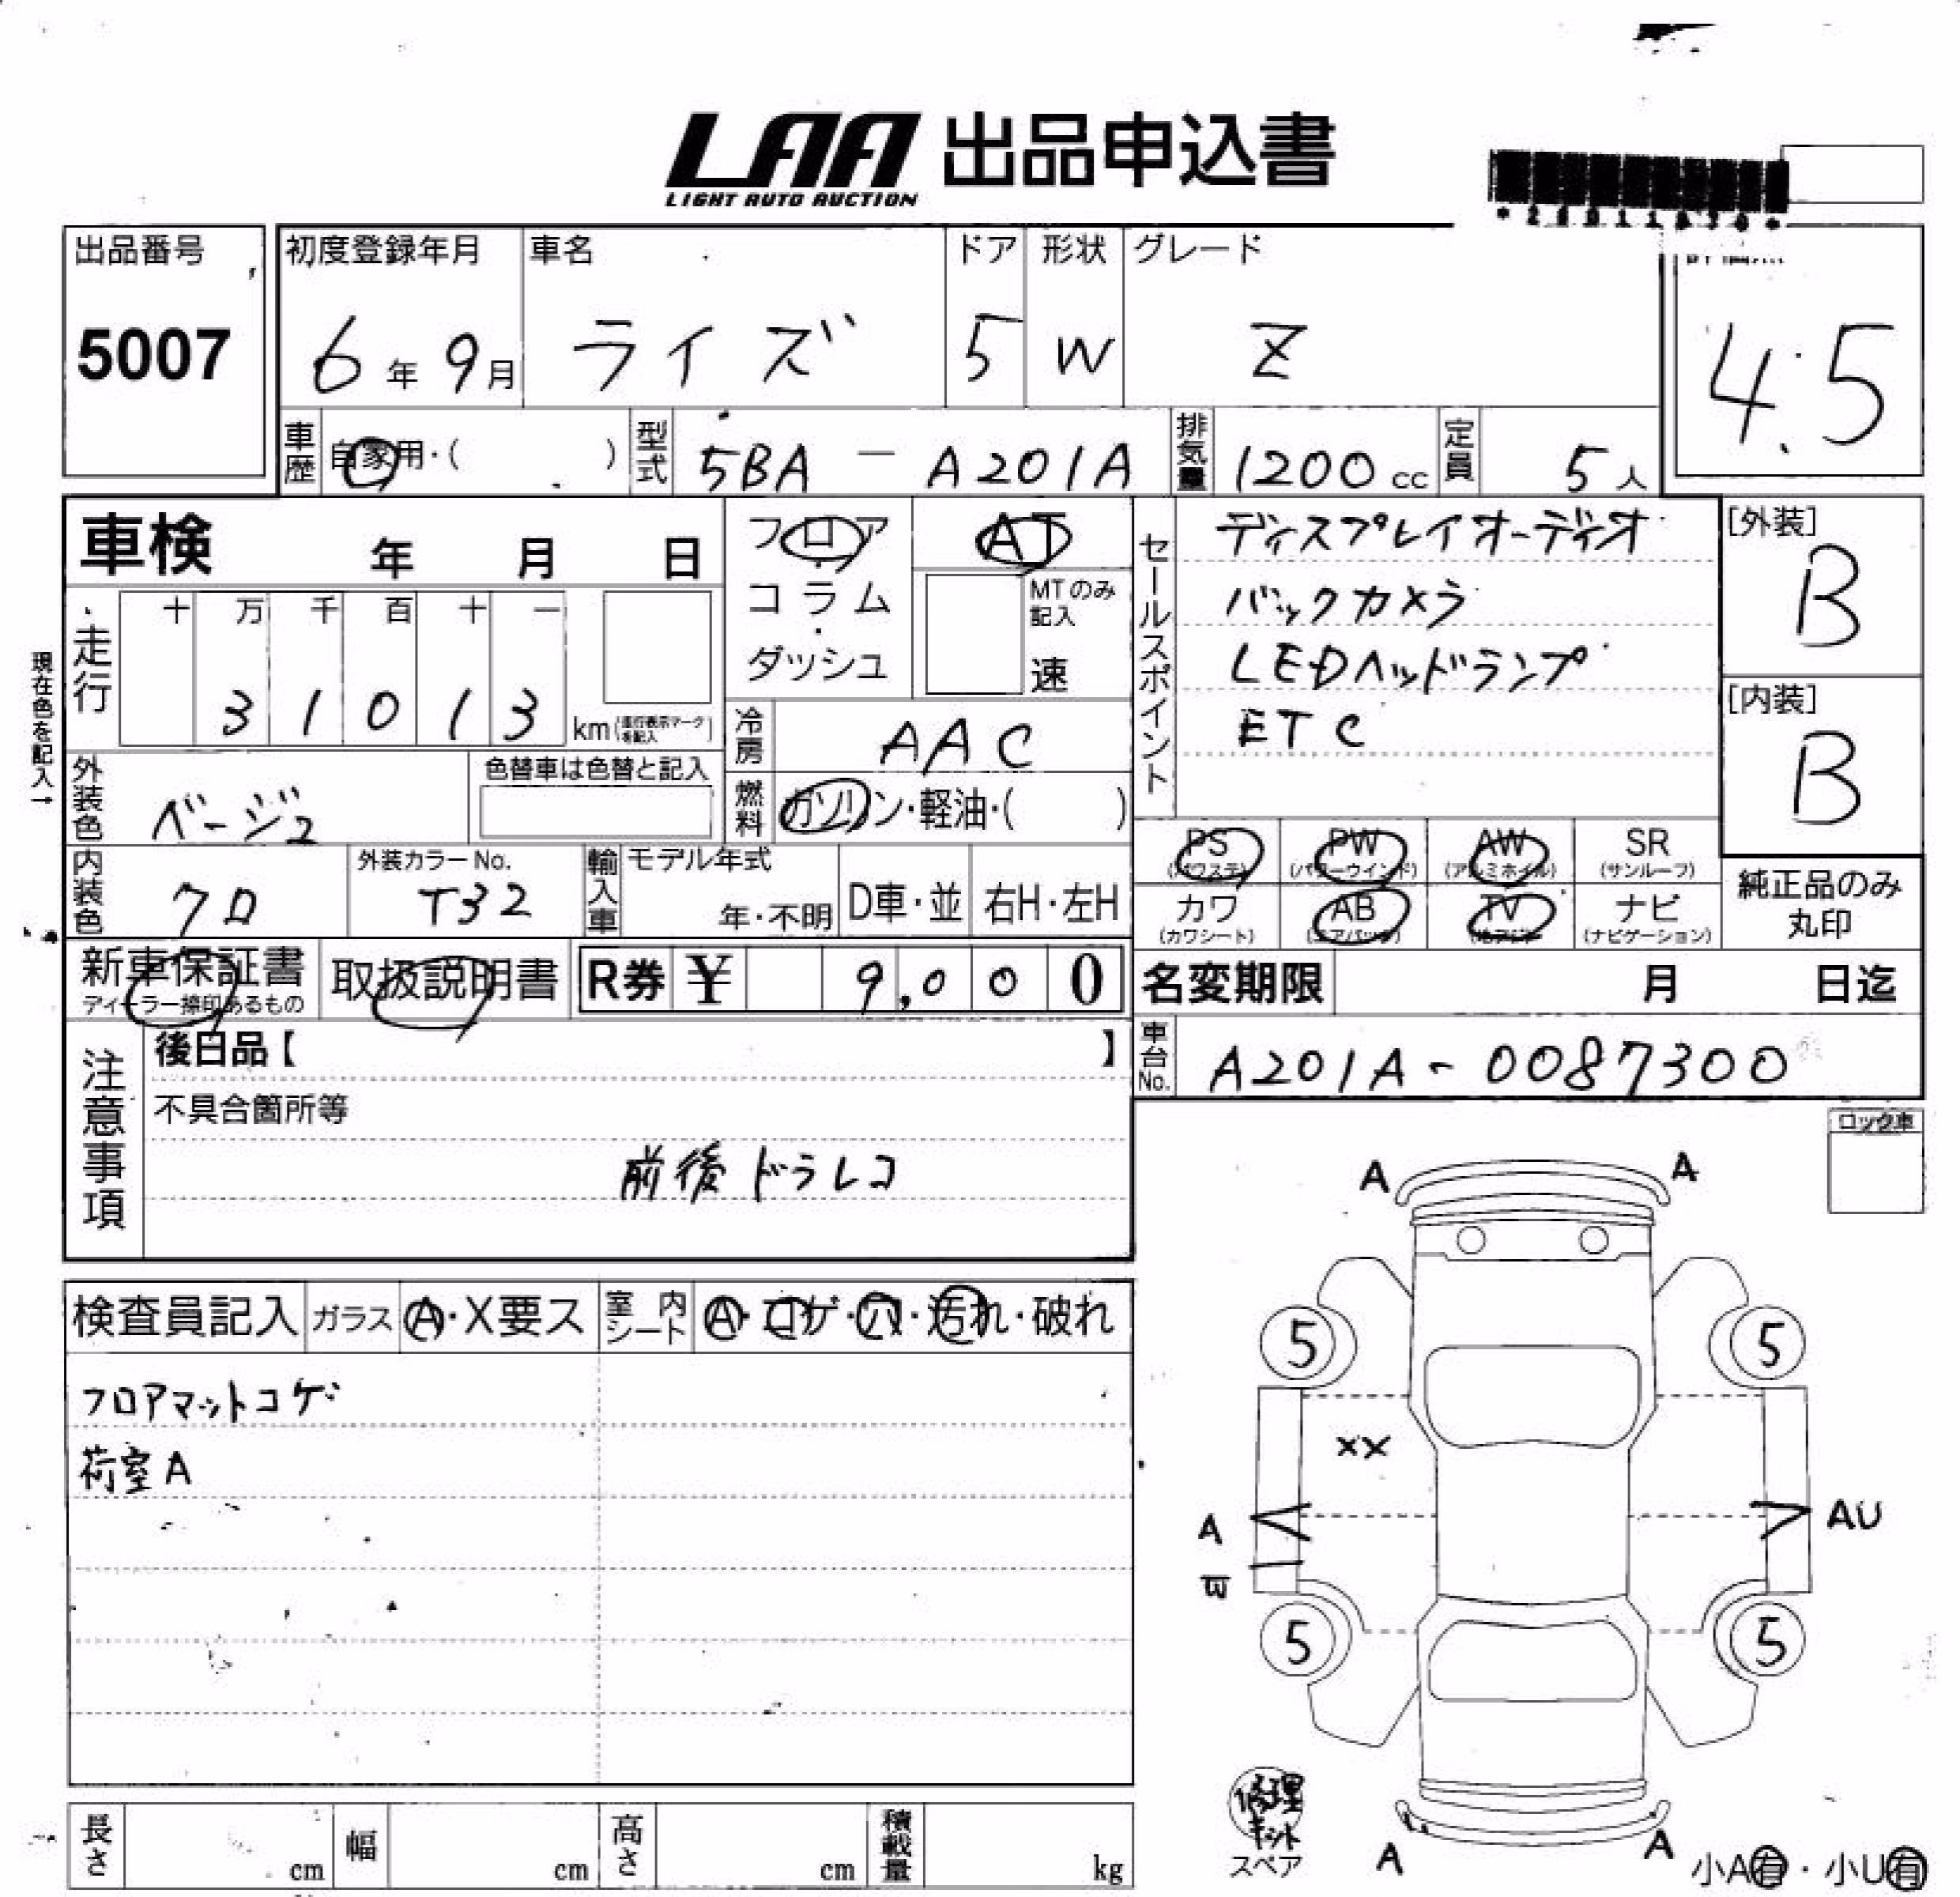 LAA 出品申込書
LIGHT AUTO AUCTION
出品番号 初度登録年月 車名 ドア 形状 グレード
5007 6年9月 ライズ 5 W Z 4.5
車歴 自家用・( ) 型式 5BA － A201A 排気量 1200cc 定員 5人
車検 年 月 日
フロア AT
コラム
ダッシュ
MTのみ記入
速
走行 十 万 千 百 十 一
3 1 0 1 3 km (走行表示マークを記入)
現在色を記入→
冷房 AAC
燃料 ガソリン・軽油・( )
外装色 ベージュ 色替車は色替と記入
内装色 クロ 外装カラーNo. T32
輸入車 モデル年式 年・不明 D車・並 右H・左H
セールスポイント
ディスプレイオーディオ
バックカメラ
LEDヘッドランプ
ETC
[外装]
B
[内装]
B
PS (パワステ) PW (パワーウインド) AW (アルミホイル) SR (サンルーフ)
カワ (カワシート) AB (エアバック) TV ナビ (ナビゲーション)
純正品のみ
丸印
新車保証書 取扱説明書 R券 ¥ 9,000
ディーラー捺印あるもの
名変期限 月 日迄
車台No. A201A-0087300
注意事項
後日品【 】
不具合箇所等
前後ドラレコ
ロック車
検査員記入 ガラス A・X要ス 室内シート A・コゲ・穴・汚れ・破れ
フロアマットコゲ
荷室A
A A
5 5
XX
A AU
5 5
修理キット
スペア
A A
小A有・小U有
長さ cm 幅 cm 高さ cm 積載量 kg